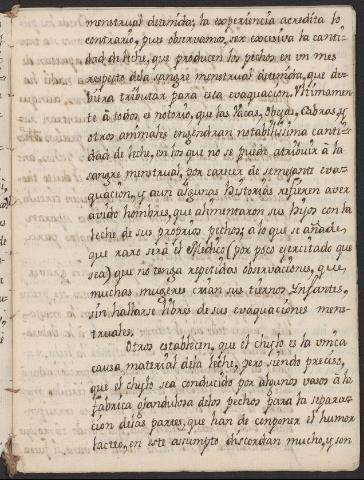 menstrual detenida; la experiencia acredita lo
contrario, pues observamos, ser excesiva la canti-
dad de leche, que producen los pechos en un mes
respecto dela sangre menstrual detenida, que de-
biera tributar para esta evaquacion. Ultimamen-
te â todos es notorio, que las Vacas, Obejas, Cabras, y
otros animales engendran notabilissima canti-
dad de leche, en los que no se puede atribuir â la
sangre menstrual, por carecer de semejante eva-
quacion, y aun algunas Historias refieren aver
avido hombres, que alimentaron sus hijos con la
leche de sus proprios pechos; a lo que se añade,
que raro serâ el Medico (por poco exercitado que
sea) que no tenga repetidas observaciones, que
muchas mugeres crian sus tiernos Infantes,
sin hallarse libres de sus evaquaciones mens-
truales.
Otros establecen, que el chylo es la unica
causa material dela leche, pero siendo preciso,
que el chylo sea conducido por algunos vasos â la
fabrica glandulosa delos pechos para la separa-
cion delas partes, que han de componer el humor
lacteo, en este assumpto discordan mucho, y son